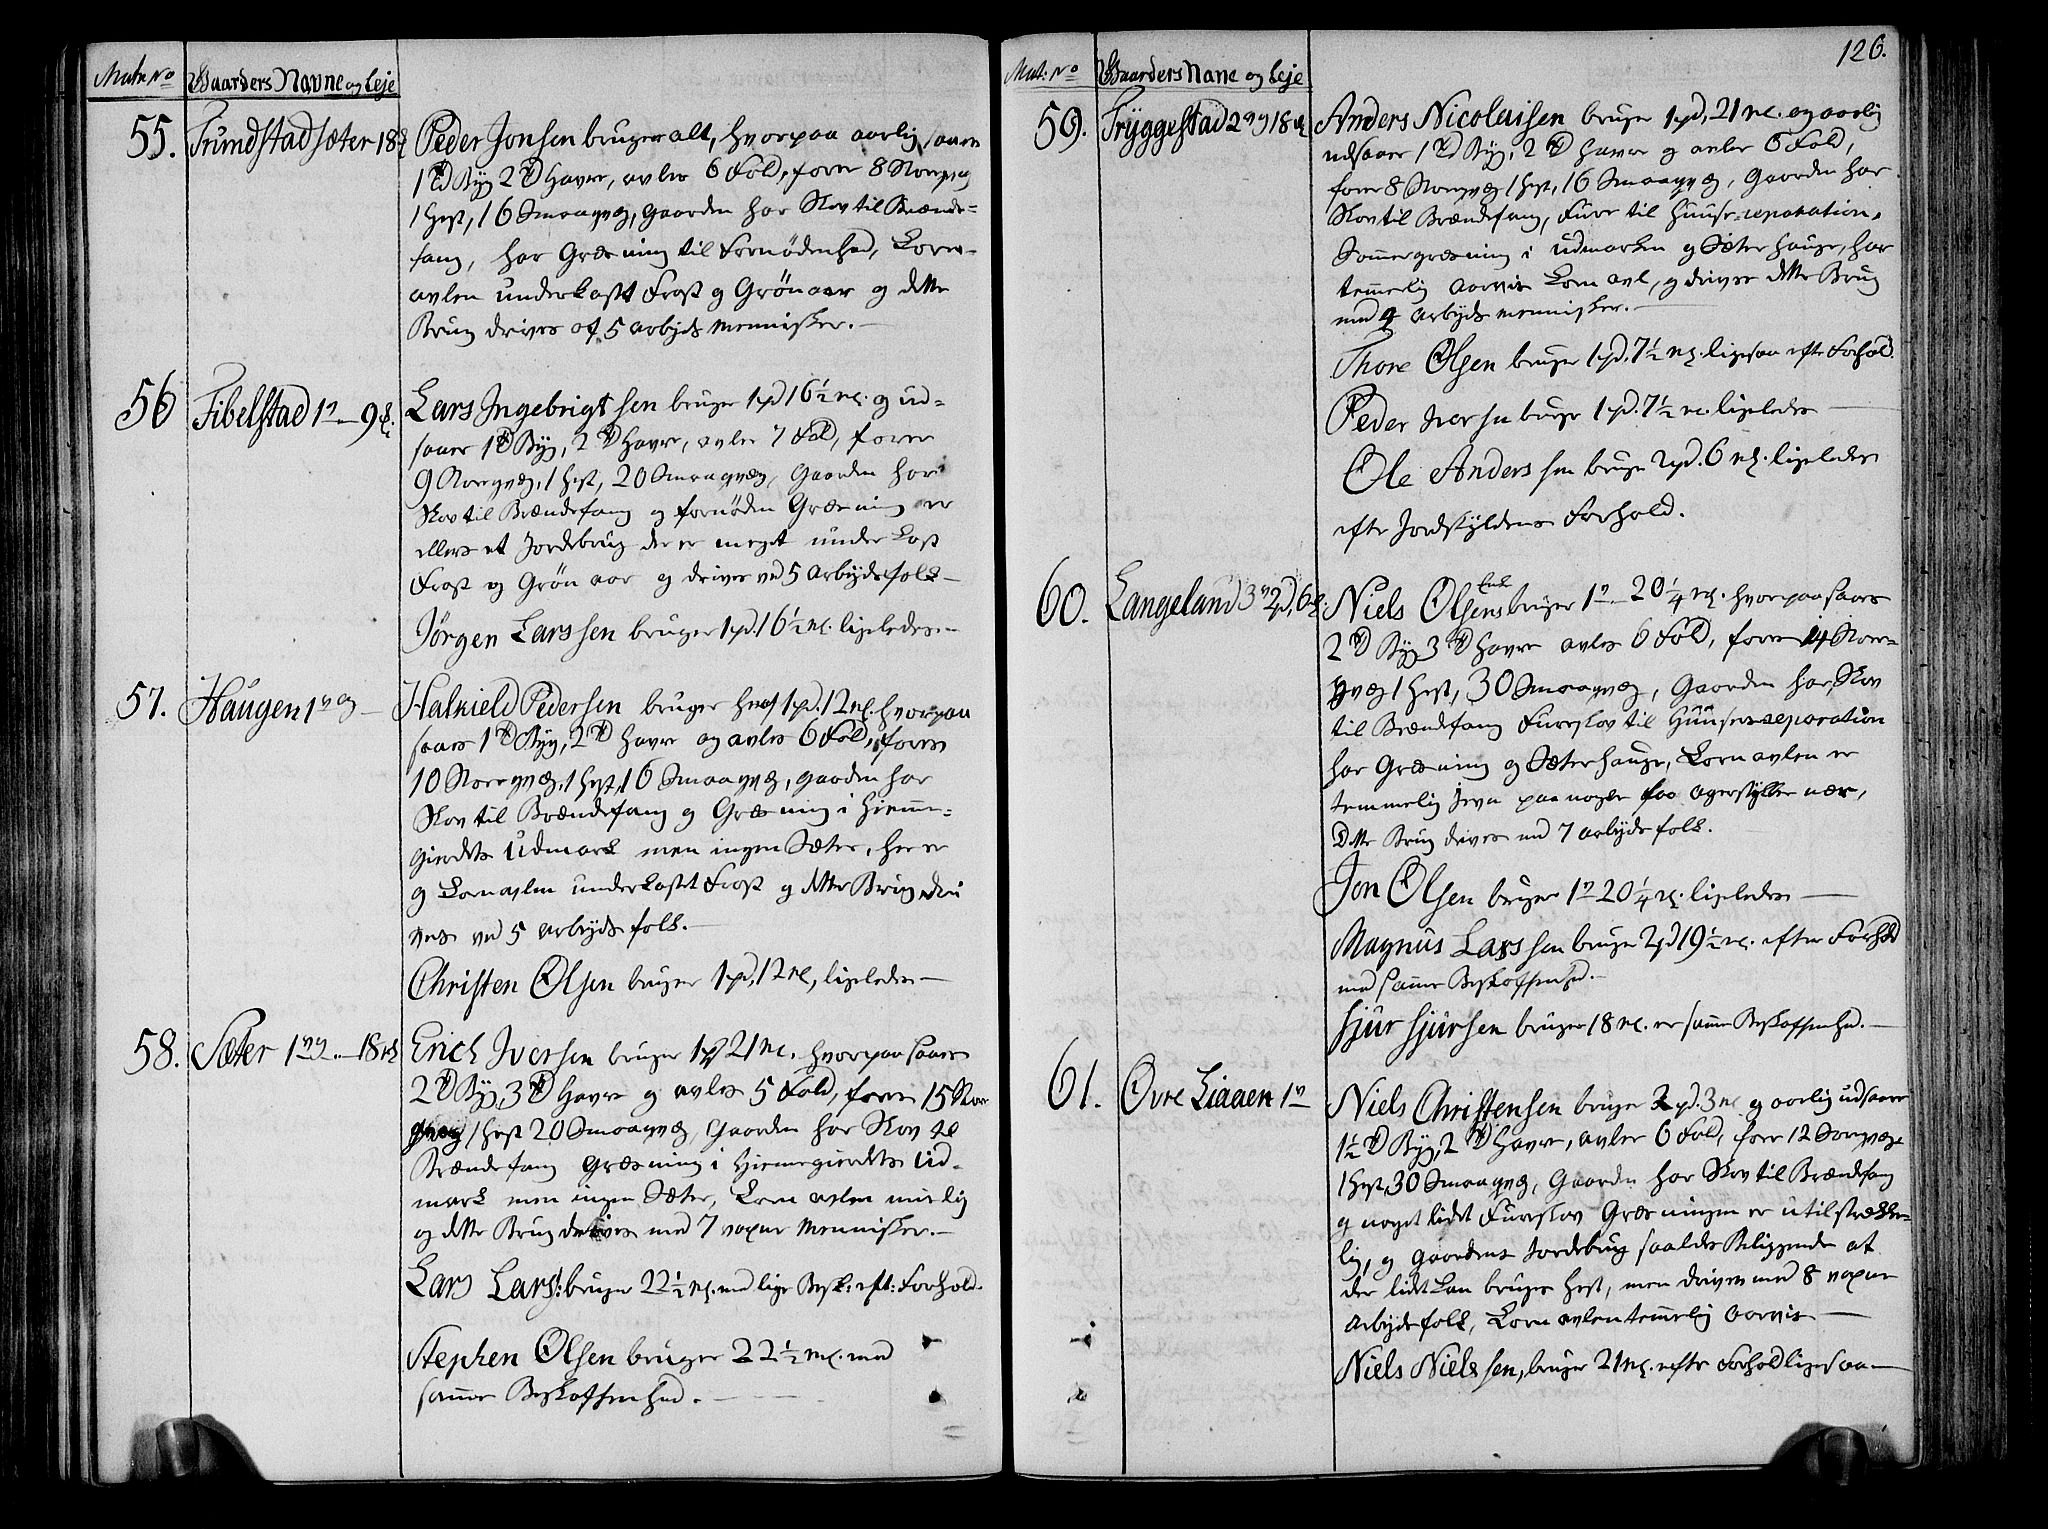 Matr: No Gaarders Navne og Leje
55. Trundstad Sæter 18 Peder Jonsen bruger alt, hvorpaa aarlig saaes
1 Td Byg 2 Td Havre, avles 6 Fold, foer 8 Storqvæg
1 Hest, 16 Smaaqvæg, Gaarden har Skov til Brænde=
fang, har Græsning til Fornødenhed, Korn-
avlen underkast Frost og Grönaar og dette
Brug drives af 5 Arbejds Mennisker.—
56 Fibelstad 1 9 Lars Ingebrigtsen bruger 1 pd 16½ mk. og ud=
saaer 1 Td Byg, 2 Td Havre, avler 7 Fold, foer
9 Storqvæg, 1 Hest, 20 Smaaqvæg, Gaarden har
Skov til Brændefang og fornøden Græsning er
ellers et Jordebrug der er meget underkast
Frost og Grön aar og drives ved 5 Arbejdsfolk—
Jørgen Larssen bruger 1 pd. 16½ mk. ligeledes.—
57. Haugen 1 Halkield Pedersen bruger heraf 1 pd. 12 mk. hvorpaa
saaes 1 Td Byg, 2 Td Havre og avles 6 Fold, foer
10 Storqvæg, 1 Hest, 16 Smaaqvæg, gaarden har
Skov til Brændefang og Græsning i Hiemme=
gierdets Udmark men ingen Sæter, her er
og Kornavlen underkastet Frost og dette Brug dri
ves ved 5 Arbejds folk.—
Christen Olsen bruger 1 pd, 12 mk, ligeledes—
58. Sæter 1 18 Erich Iversen bruger 1 pd 21 mk. hvorpaa saaes
2 Td Byg, 3 Td Havre og avles 5 Fold, foer 15 Stor
qvæg 1 Hest 20 Smaaqvæg, Gaarden har Skov til
Brændefang Græsning i Hjemegierdets Ud=
mark men ingen Sæter, Korn avlen mislig
og dette Brug drives med 7 voxne Mennisker.—
Lars Lars: bruger 22½ mk. med lige Besk: eft: Forhold.
Stephen Olsen bruger 22½ mk. med
samme Beskaffenhed.—
126.
Mat: No Gaarders Nane og Leje
59. Tryggestad 2 18 Anders Nicolaisen bruger 1 pd, 21 mk. og aarlig
udsaaer 1 Td Byg, 2 Td Havre og avler 6 Fold,
foer 8 Storqvæg 1 Hest, 16 Smaaqvæg, Gaarden har
Skov til Brændefang, Furr til Huuse=reparation,
Sommergræsning i Udmarken og Sæter hauge, har
temmelig aarvis Korn avl, og drives dette Brug
med 4 Arbejds mennisker.—
Thore Olsen bruger 1 pd. 7½ mk. ligesaa efter Forhold.
Peder Iversen bruger 1 pd. 7½ mk. ligeledes—
Ole Anderssen bruger 2 pd. 6 mk. ligeledes
efter Jordskyldens Forhold.
60. Langeland 3 2 pd. 6 Niels Olsens Enke bruger 1 20¼ mk. hvorpaa saaes
2 Td Byg 3 Td Havre avles 6 Fold, foer 14 Stor=
qvæg 1 Hest, 30 Smaaqvæg, Gaarden har Skov
til Brændefang Fureskov til Huusereparation
har Græsning og Sæterhauge, Kornavlen er
temmelig jevn paa nogle faa agerstykker nær,
Dette Brug drives med 7 Arbejdsfolk.
Jon Olsen bruger 1 20¼ mk. ligeledes—
Magnus Larssen bruger 2 pd 19½ mk. efter Forhold
med samme Beskaffenhed.—
Sjur Sjursen bruger 18 mk. er samme Beskaffenhed.—
61. Øvre Liaaen 1 Niels Christensen bruger 2 pd. 3 mk og aarlig udsaaer
1½ Td Byg, 2 Td Havre, avler 6 Fold, foer 12 Storqvæg
1 Hest, 30 Smaaqvæg, Gaarden har Skov til Brændefang
og noget lidet Fureskov Græsningen er utilstrække-
lig, og Gaardens Jordebrug saaledes Beliggende at
der lidet kan bruges Hest, men drives med 8 voxne
Arbejdsfolk, Kornavlen temmelig aarvis—
Niels Nielssen, bruger 21 mk. efter Forhold ligesaa—